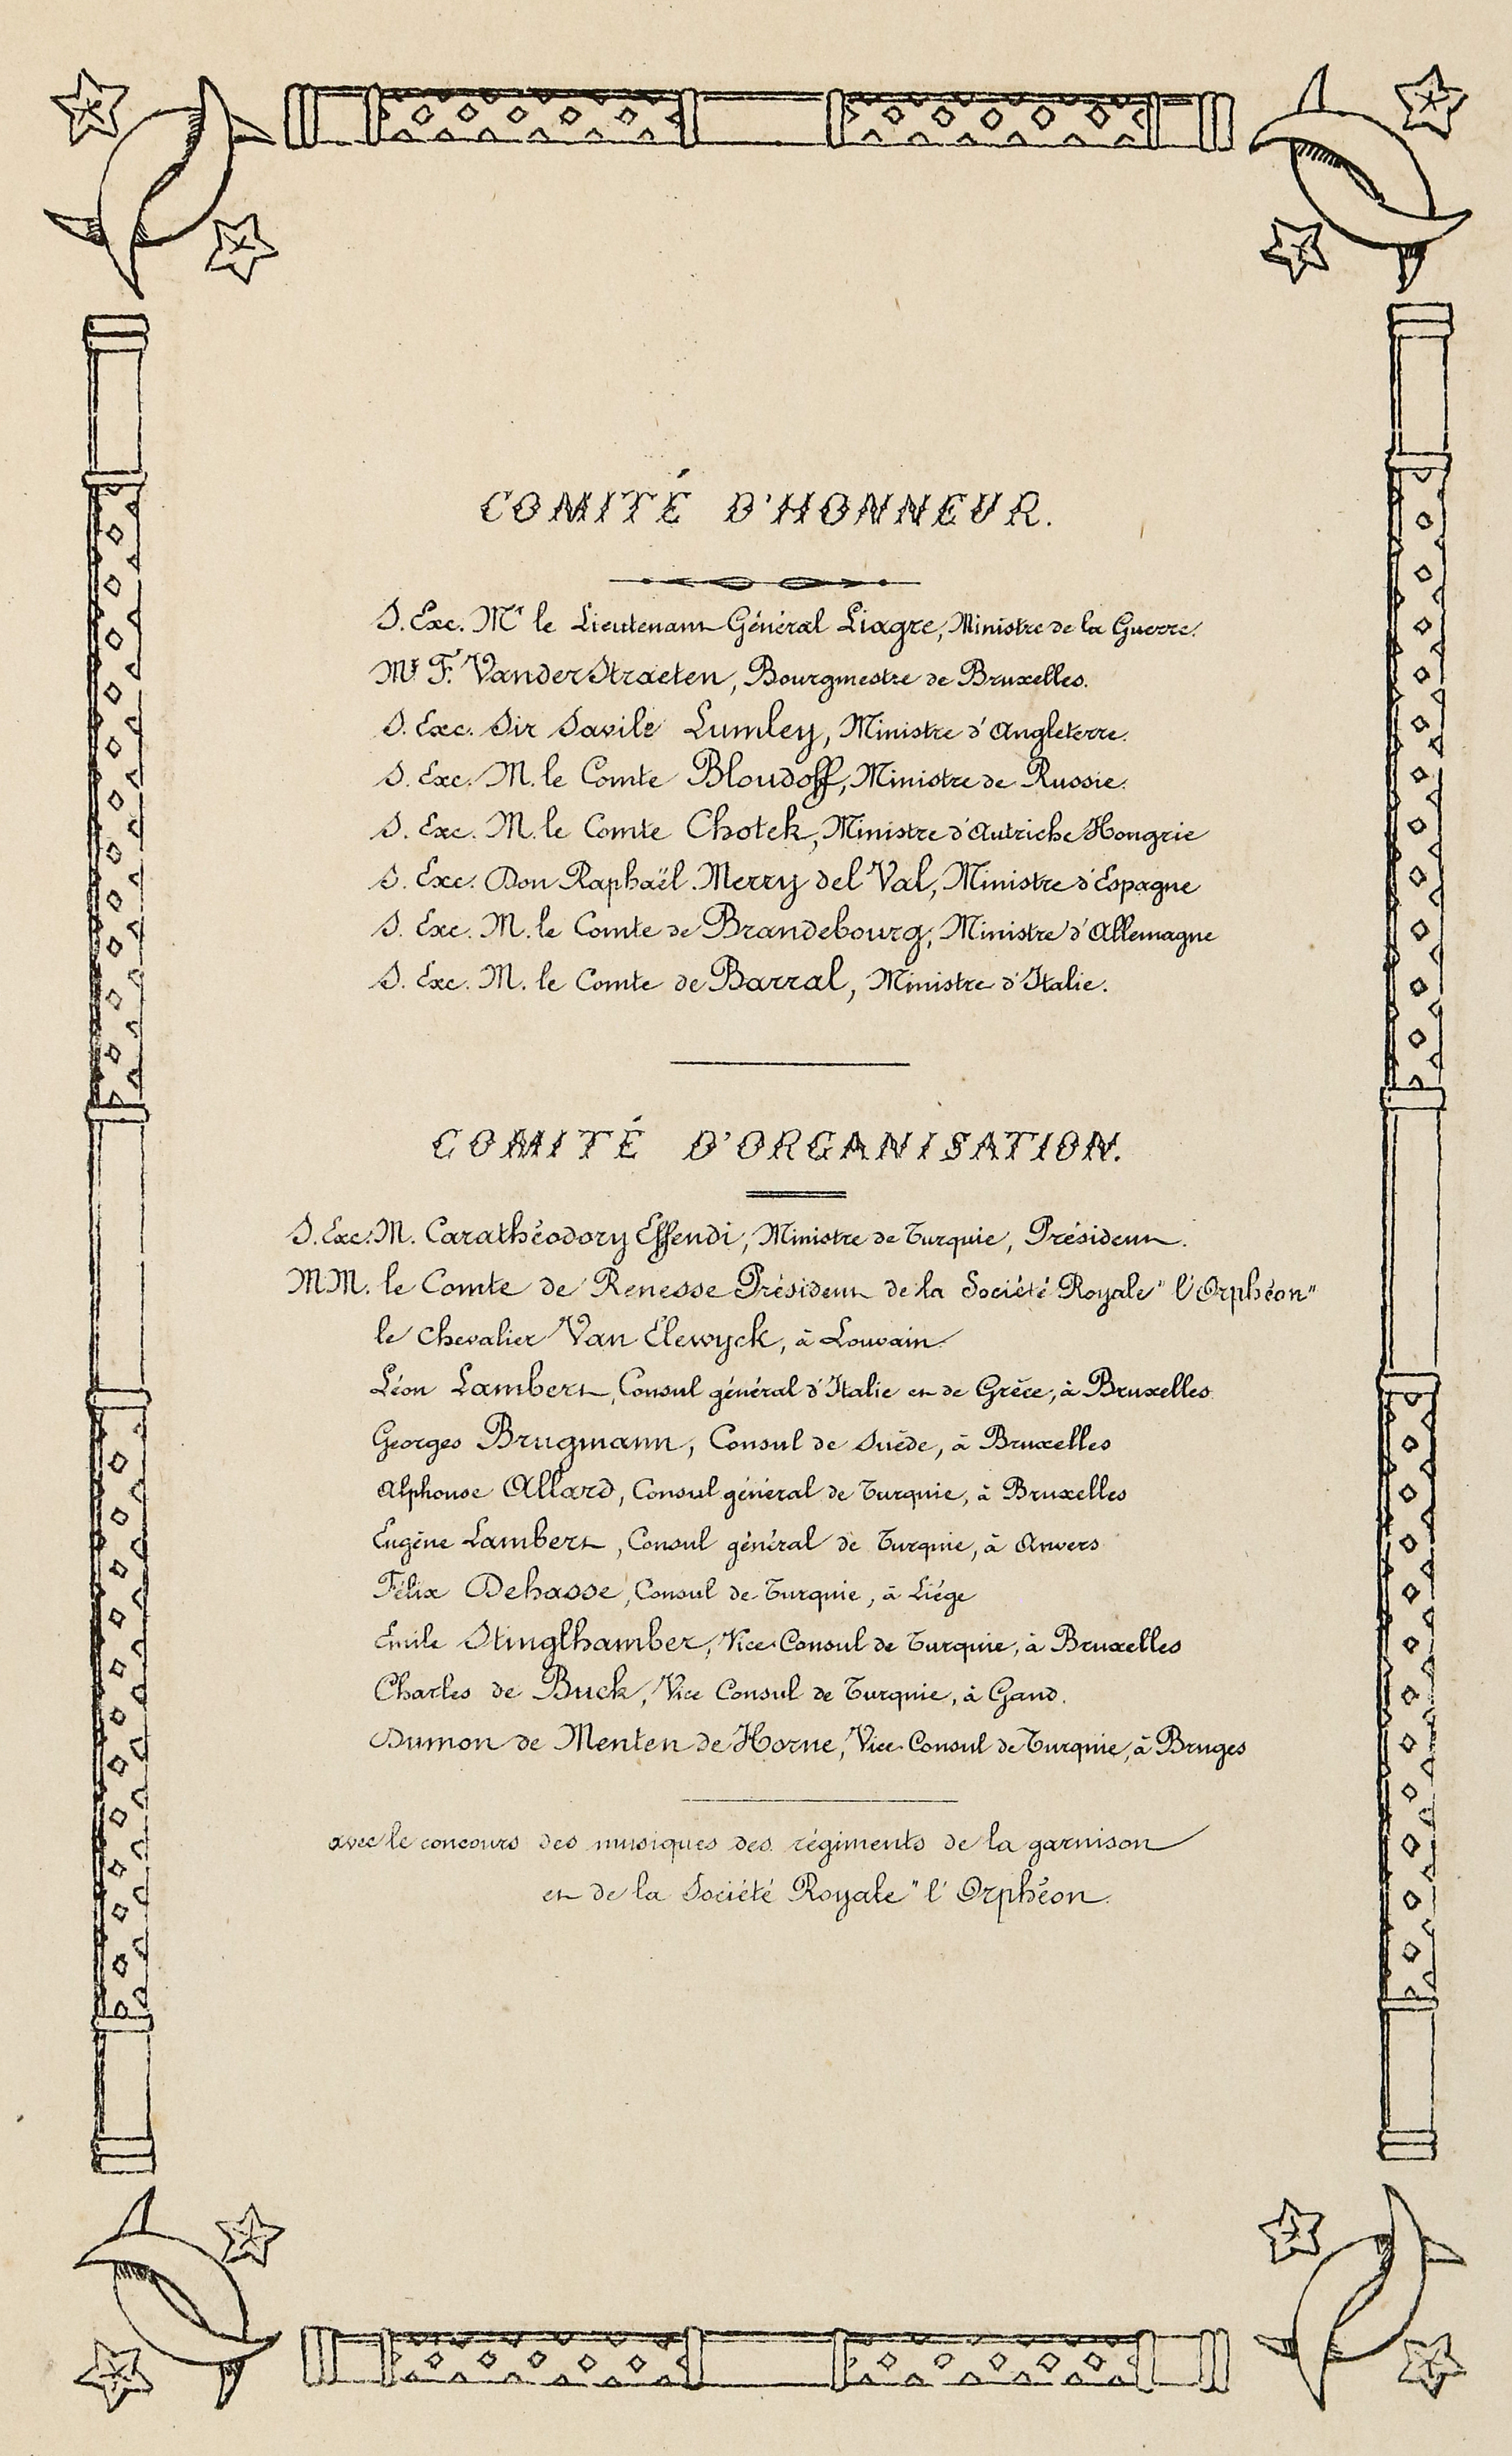 COMITÉ D'HONNEUR.
S. Exc. Mr le Lieutenant Général Liagre, Ministre de la Guerre.
Mr F. VanderStraeten, Bourgmestre de Bruxelles.
S. Exc. Sir Savile Lumley, Ministre d'Angleterre.
S. Exc. M. le Comte Bloudoff, Ministre de Russie.
S. Exc. M. le Comte Chotek, Ministre d'Autriche Hongrie
S. Exc. Don Raphaël Merry del Val, Ministre d'Espagne
S. Exc. M. le Comte de Brandebourg, Ministre d'Allemagne
S. Exc. M. le Comte de Barral, Ministre d'Italie.
COMITÉ D'ORGANISATION.
S. Exc. M. Carathéodory Effendi, Ministre de Turquie, Président.
MM. le Comte de Renesse Président de la Société Royale "l'Orphéon"
le Chevalier Van Elewyck, à Louvain.
Léon Lambert, Consul général d'Italie et de Grèce, à Bruxelles.
Georges Brugmann, Consul de Suède, à Bruxelles
Alphonse Allard, Consul général de Turquie, à Bruxelles
Eugène Lambert, Consul général de Turquie, à Anvers
Félix Dehasse, Consul de Turquie, à Liége
Emile Stinglhamber, Vice Consul de Turquie, à Bruxelles
Charles de Buck, Vice Consul de Turquie, à Gand.
Dumon de Menten de Horne, Vice Consul de Turquie, à Bruges
avec le concours des musiques des régiments de la garnison
et de la Société Royale "l'Orphéon.